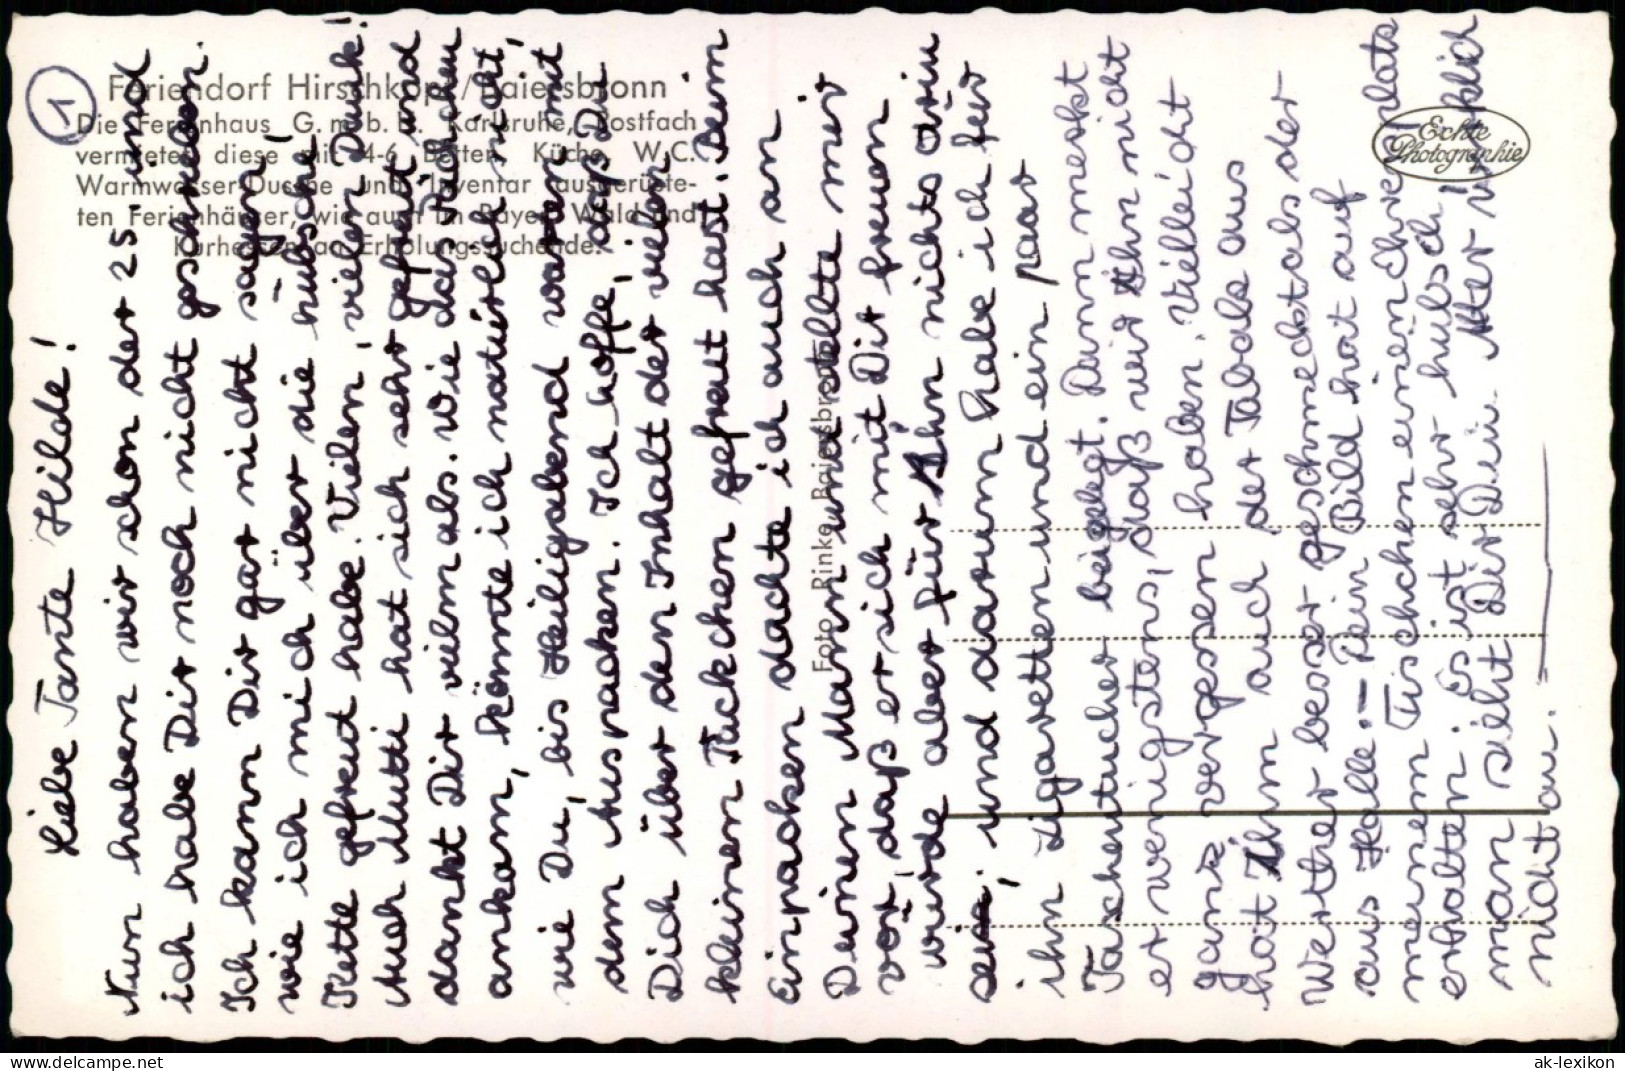 1
Feriendorf Hirschkopf/Baiersbronn
Die Ferienhaus G.m.b.H. Karlsruhe, Postfach
vermietet diese mit 4-6 Betten, Küche, W.C.
Warmwasser-Dusche und Inventar ausgerüste-
ten Ferienhäuser, wie auch im Bayer. Wald und
Kurhessen an Erholungssuchende.
Echte
Photographie
Foto Rinke Baiersbronn
Liebe Tante Hilde!
Nun haben wir schon der 25. und
ich habe Dir noch nicht geschrieben.
Ich kann Dir gar nicht sagen!
wie ich mich über die hübsche
Kette gefreut habe. Vielen, vielen Dank!
Auch Mutti hat sich sehr gefreut und
dankt Dir vielmals. Wie das Päckchen
ankam, könnte ich natürlich nicht,
wie Du, bis Heiligabend warten mit
dem Auspacken. Ich hoffe, daß Du
Dich über den Inhalt der vielen
kleinen Päckchen gefreut hast. Beim
Einpacken dachte ich auch an
Deinen Mann und stellte mir
vor, daß er sich mit Dir freuen
würde aber für Ihn nichts drin
sei, und darum habe ich für
ihn Zigaretten und ein paar
Taschentücher beigelegt. Dann merkt
er wenigstens, daß wir Ihn nicht
ganz vergessen haben. Vielleicht
hat Ihm auch der Tabak aus
Werther besser geschmeckt als der
aus Halle. – Dein Bild hat auf
meinem Tischchen einen Ehrenplatz
erhalten. Es ist sehr hübsch!
man sieht Dir Dein Alter wirklich
nicht an.
www.delcampe.net
ak-lexikon